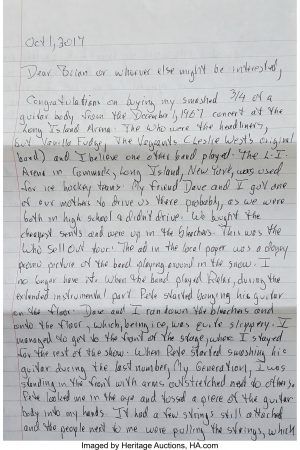 Oct 1, 2017
Dear Brian or whoever else might be interested,
Congratulations on buying my smashed 3/4 of a
guitar body from the December 1, 1967 concert at the
Long Island Arena. The Who were the headliners,
but Vanilla Fudge, The Vagrants (Leslie West's original
band) and I believe one other band played. The L.I.
Arena in Commack, Long Island, New York, was used
for ice hockey teams. My friend Dave and I got one
of our mothers to drive us there probably, as we were
both in high school & didn't drive. We bought the
cheapest seats and were up in the bleachers. This was the
Who Sell Out tour. The ad in the local paper was a
promo picture of the band playing around in the snow. I
no longer have it. When the band played Relax, during the
extended instrumental part Pete started banging his guitar
on the floor. Dave and I ran down the bleachers and
onto the floor, which, being ice, was quite slippery. I
managed to get to the front of the stage, where I stayed
for the rest of the show. When Pete started smashing his
guitar during the last number, My Generation, I was
standing in the front with arms outstretched next to others.
Pete looked me in the eye and tossed a piece of the guitar
body into my hands. It had a few strings still attached
and the people next to me were pulling the strings, which
Imaged by Heritage Auctions, HA.com